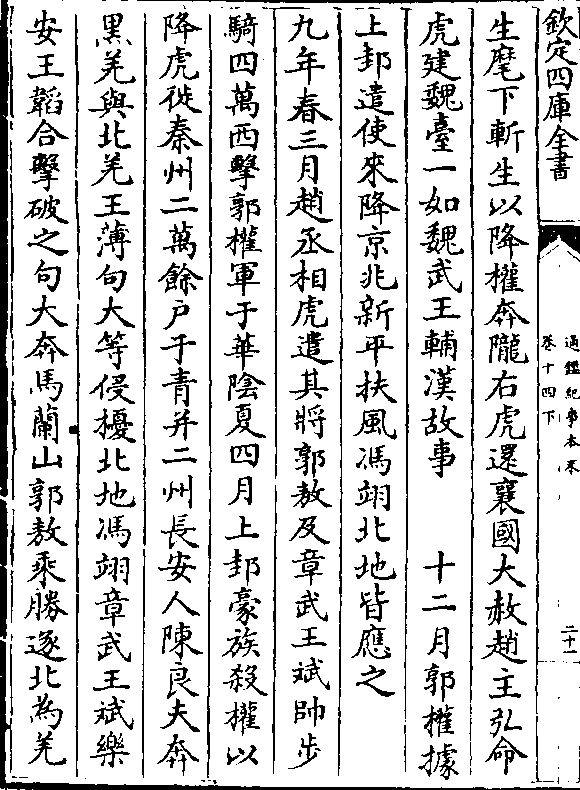 欽定四庫全書
通鑑紀事本末
卷十四下
二十一
生麾下斬生以降權奔隴右虎還襄國大赦趙主弘命
虎建魏臺一如魏武王輔漢故事　十二月郭權據
上邽遣使來降京兆新平扶風馮翊北地皆應之
九年春三月趙丞相虎遣其將郭敖及章武王斌帥步
騎四萬西擊郭權軍于華陰夏四月上邽豪族殺權以
降虎徙秦州二萬餘户于青并二州長安人陳良夫奔
黑羌與北羌王薄句大等侵擾北地馮翊章武王斌樂
安王韜合擊破之句大奔馬蘭山郭敖乘勝逐北為羌